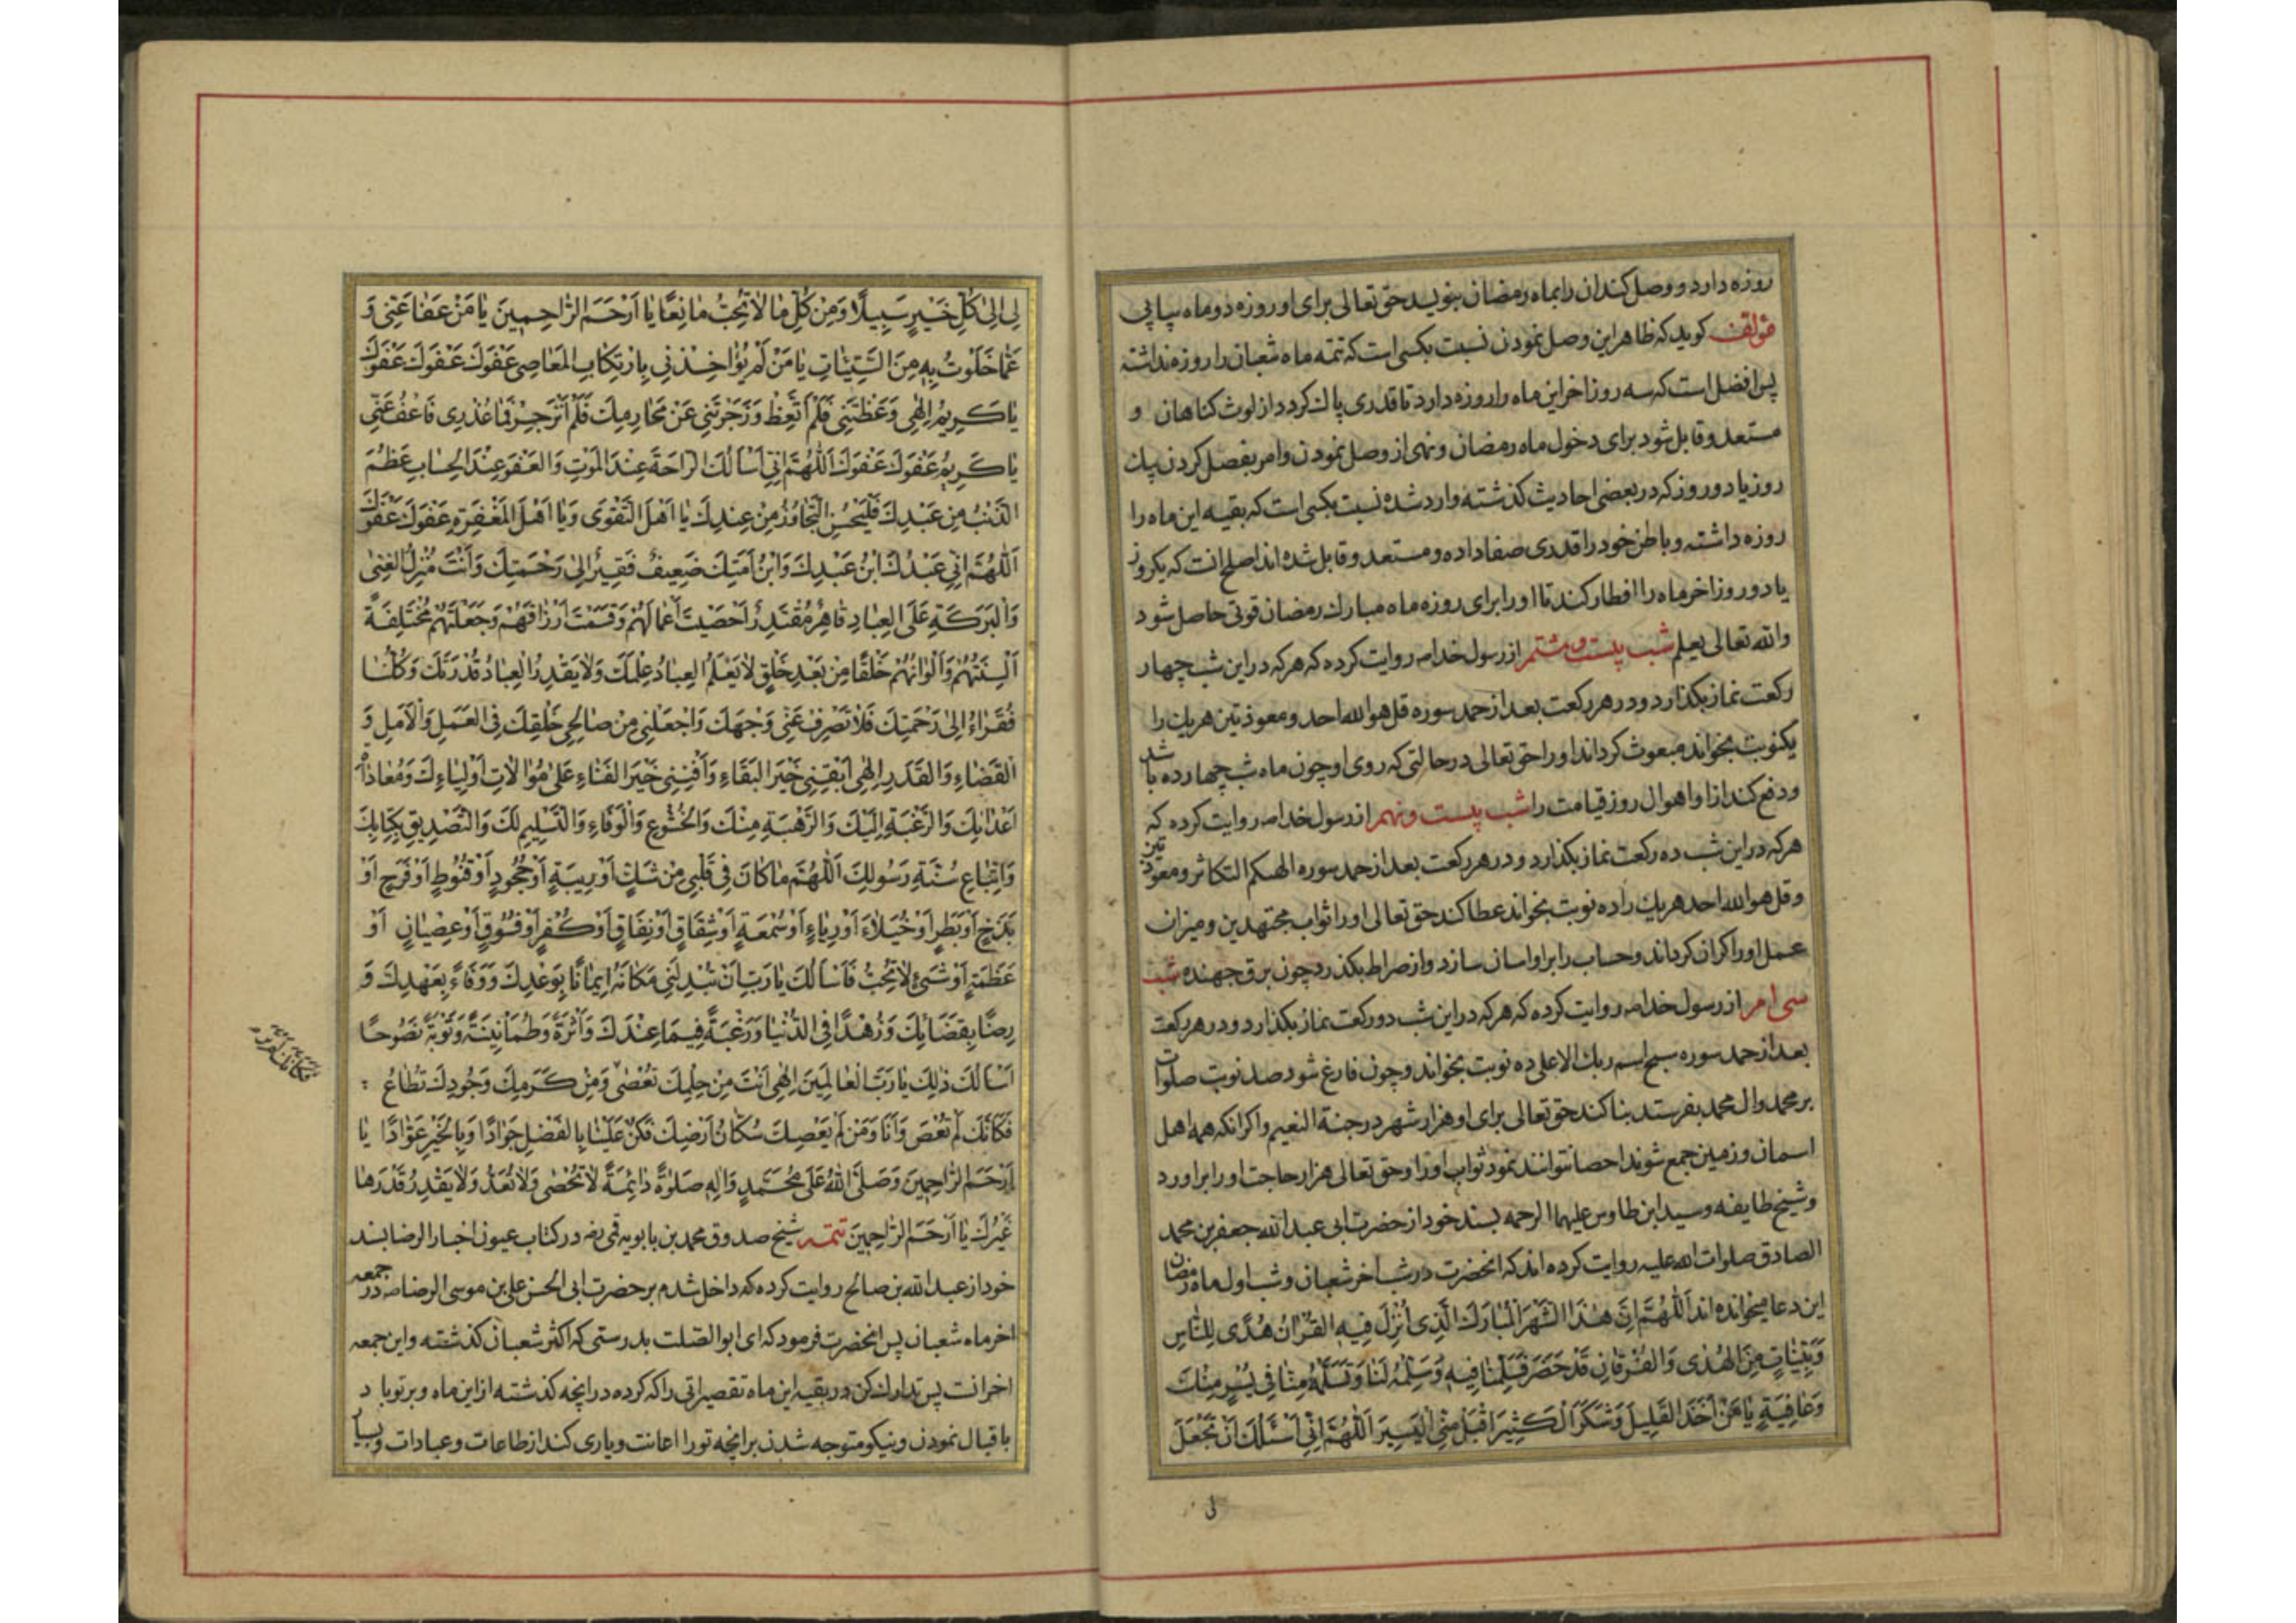 روزه دارد و وصل کند ان را بماه رمضان بنویسد حق تعالی برای او روزه دو ماه پیاپی
مؤلف کوید که ظاهر این وصل نمودن نسبت بکسی است که تتمه ماه شعبان را روزه نداشته
پس افضل است که سه روز اخر این ماه را روزه دارد تا قدری پاک کردد از لوث کناهان و
مستعد و قابل شود برای دخول ماه رمضان و نهی از وصل نمودن و امر بفصل کردن یک
روز یا دو روز که در بعضی احادیث کذشته وارد شده نسبت بکسی است که بقیه این ماه را
روزه داشته و باطن خود را قدری صفا داده و مستعد و قابل شده اند اصلح انت که یکروز
یا دو روز اخر ماه را افطار کند تا او را برای روزه ماه مبارک رمضان قوتی حاصل شود
والله تعالی یعلم شب بیست و هشتم از رسول خدا صه روایت کرده که هر که در این شب چهار
رکعت نماز بکذارد و در هر رکعت بعد از حمد سوره قل هو الله احد و معوذتین هر یک را
یکنوبت بخواند مبعوث کرداند او را حق تعالی در حالتی که روی او چون ماه شب چهارده باشد
و دفع کند از او اهوال روز قیامت را شب بیست و نهم از رسول خدا صه روایت کرده که
هر که در این شب ده رکعت نماز بکذارد و در هر رکعت بعد از حمد سوره الهیکم التکاثر و معوذتین
و قل هو الله احد هر یک را ده نوبت بخواند عطا کند حق تعالی او را ثواب مجتهدین و میزان
عمل او را کران کرداند و حساب را بر او اسان سازد و از صراط بکذرد چون برق جهنده شب
سی ام از رسول خدا صه روایت کرده که هر که در این شب دو رکعت نماز بکذارد و در هر رکعت
بعد از حمد سوره سبح اسم ربک الاعلی ده نوبت بخواند و چون فارغ شود صد نوبت صلوات
بر محمد وال محمد بفرستد بنا کند حق تعالی برای او هزار شهر در جنة النعیم و اکر انکه همه اهل
اسمان و زمین جمع شوند احصا نتوانند نمود ثواب او را و حق تعالی هزار حاجت او را براورد
و شیخ طایفه و سید ابن طاوس علیهما الرحمه بسند خود از حضرت ابی عبد الله جعفر بن محمد
الصادق صلوات الله علیه روایت کرده اند که انحضرت در شب اخر شعبان و شب اول ماه رمضان
این دعا میخوانده اند اَللّٰهُمَّ اِنَّ هٰذَا الشَّهْرَ الْمُبَارَكَ الَّذِی اُنْزِلَ فِیهِ الْقُرْاٰنُ هُدًی لِلنَّاسِ
وَبَیِّنَاتٍ مِنَ الْهُدٰی وَالْفُرْقَانِ قَدْ حَضَرَ فَسَلِّمْنَا فِیهِ وَسَلِّمْهُ لَنَا وَتَسَلَّمْهُ مِنَّا فِی یُسْرٍ مِنْكَ
وَعَافِیَةٍ یَا مَنْ اَخَذَ الْقَلِیلَ وَشَكَرَ الْكَثِیرَ اقْبَلْ مِنِّی الْیَسِیرَ اَللّٰهُمَّ اِنِّی اَسْئَلُكَ اَنْ تَجْعَلَ
لی
لِی اِلیٰ كُلِّ خَیْرٍ سَبِیلًا وَمِنْ كُلِّ مَا لَا تُحِبُّ مَانِعًا یَا اَرْحَمَ الرَّاحِمِینَ یَا مَنْ عَفَا عَنِّی وَ
عَمَّا خَلَوْتُ بِهِ مِنَ السَّیِّئَاتِ یَا مَنْ لَمْ یُؤَاخِذْنِی بِارْتِكَابِ الْمَعَاصِی عَفْوَكَ عَفْوَكَ عَفْوَكَ
یَا كَرِیمُ اِلٰهِی وَعَظْتَنِی فَلَمْ اَتَّعِظْ وَزَجَرْتَنِی عَنْ مَحَارِمِكَ فَلَمْ اَنْزَجِرْ فَمَا عُذْرِی فَاعْفُ عَنِّی
یَا كَرِیمُ عَفْوَكَ عَفْوَكَ اَللّٰهُمَّ اِنِّی اَسْاَلُكَ الرَّاحَةَ عِنْدَ الْمَوْتِ وَالْعَفْوَ عِنْدَ الْحِسَابِ عَظُمَ
الذَّنْبُ مِنْ عَبْدِكَ فَلْیَحْسُنِ التَّجَاوُزُ مِنْ عِنْدِكَ یَا اَهْلَ التَّقْوٰی وَیَا اَهْلَ الْمَغْفِرَةِ عَفْوَكَ عَفْوَكَ
اَللّٰهُمَّ اِنِّی عَبْدُكَ ابْنُ عَبْدِكَ وَابْنُ اَمَتِكَ ضَعِیفٌ فَقِیرٌ اِلٰی رَحْمَتِكَ وَاَنْتَ مُنْزِلُ الْغِنٰی
وَالْبَرَكَةِ عَلَی الْعِبَادِ قَاهِرٌ مُقْتَدِرٌ اَحْصَیْتَ اَعْمَالَهُمْ وَقَسَمْتَ اَرْزَاقَهُمْ وَجَعَلْتَهُمْ مُخْتَلِفَةً
اَلْسِنَتُهُمْ وَاَلْوَانُهُمْ خَلْقًا مِنْ بَعْدِ خَلْقٍ لَا یَعْلَمُ الْعِبَادُ عِلْمَكَ وَلَا یَقْدِرُ الْعِبَادُ قُدْرَتَكَ وَكُلُّنَا
فُقَرَاءُ اِلٰی رَحْمَتِكَ فَلَا تَصْرِفْ عَنِّی وَجْهَكَ وَاجْعَلْنِی مِنْ صَالِحِی خَلْقِكَ فِی الْعَمَلِ وَالْاَمَلِ وَ
الْقَضَاءِ وَالْقَدَرِ اِلٰهِی اَبْقِنِی خَیْرَ الْبَقَاءِ وَاَفْنِنِی خَیْرَ الْفَنَاءِ عَلٰی مُوَالَاتِ اَوْلِیَاءِكَ وَمُعَادَاةِ
اَعْدَائِكَ وَالرَّغْبَةِ اِلَیْكَ وَالرَّهْبَةِ مِنْكَ وَالْخُشُوعِ وَالْوَفَاءِ وَالتَّسْلِیمِ لَكَ وَالتَّصْدِیقِ بِكِتَابِكَ
وَاتِّبَاعِ سُنَّةِ رَسُولِكَ اَللّٰهُمَّ مَا كَانَ فِی قَلْبِی مِنْ شَكٍّ اَوْ رِیبَةٍ اَوْ جُحُودٍ اَوْ قُنُوطٍ اَوْ فَرَحٍ اَوْ
بَذَخٍ اَوْ بَطَرٍ اَوْ خُیَلَاءَ اَوْ رِیَاءٍ اَوْ سُمْعَةٍ اَوْ شِقَاقٍ اَوْ نِفَاقٍ اَوْ كُفْرٍ اَوْ فُسُوقٍ اَوْ عِصْیَانٍ اَوْ
عَظَمَةٍ اَوْ شَیْءٍ لَا تُحِبُّ فَاَسْاَلُكَ یَا رَبِّ اَنْ تُبْدِلَنِی مَكَانَهُ اِیمَانًا بِوَعْدِكَ وَوَفَاءً بِعَهْدِكَ وَ
رِضًا بِقَضَائِكَ وَزُهْدًا فِی الدُّنْیَا وَرَغْبَةً فِیمَا عِنْدَكَ وَاَثَرَةً وَطُمَاْنِینَةً وَتَوْبَةً نَصُوحًا
اَسْاَلُكَ ذٰلِكَ یَا رَبَّ الْعَالَمِینَ اِلٰهِی اَنْتَ مِنْ حِلْمِكَ تُعْصٰی وَمِنْ كَرَمِكَ وَجُودِكَ تُطَاعُ :
فَكَاَنَّكَ لَمْ تُعْصَ وَاَنَا وَمَنْ لَمْ یَعْصِكَ سُكَّانُ اَرْضِكَ فَكُنْ عَلَیْنَا بِالْفَضْلِ جَوَادًا وَبِالْخَیْرِ عَوَّادًا یَا
اَرْحَمَ الرَّاحِمِینَ وَصَلَّی اللّٰهُ عَلٰی مُحَمَّدٍ وَاٰلِهِ صَلٰوةً دَائِمَةً لَا تُحْصٰی وَلَا تُعَدُّ وَلَا یَقْدِرُ قَدْرَهَا
غَیْرُكَ یَا اَرْحَمَ الرَّاحِمِینَ تتمه شیخ صدوق محمد بن بابویه قمی ره در کتاب عیون اخبار الرضا بسند
خود از عبد الله بن صالح روایت کرده که داخل شدم بر حضرت ابی الحسن علی بن موسی الرضا صه در جمعه
اخر ماه شعبان پس انحضرت فرمود که ای ابو الصّلت بدرستی که اکثر شعبان کذشته و این جمعه
اخر انت پس تدارک کن در بقیه این ماه تقصیراتی را که کرده در انچه کذشته از این ماه و بر تو باد
باقبال نمودن و نیکو متوجه شدن بر انچه تو را اعانت و یاری کند از طاعات و عبادات و بسیار